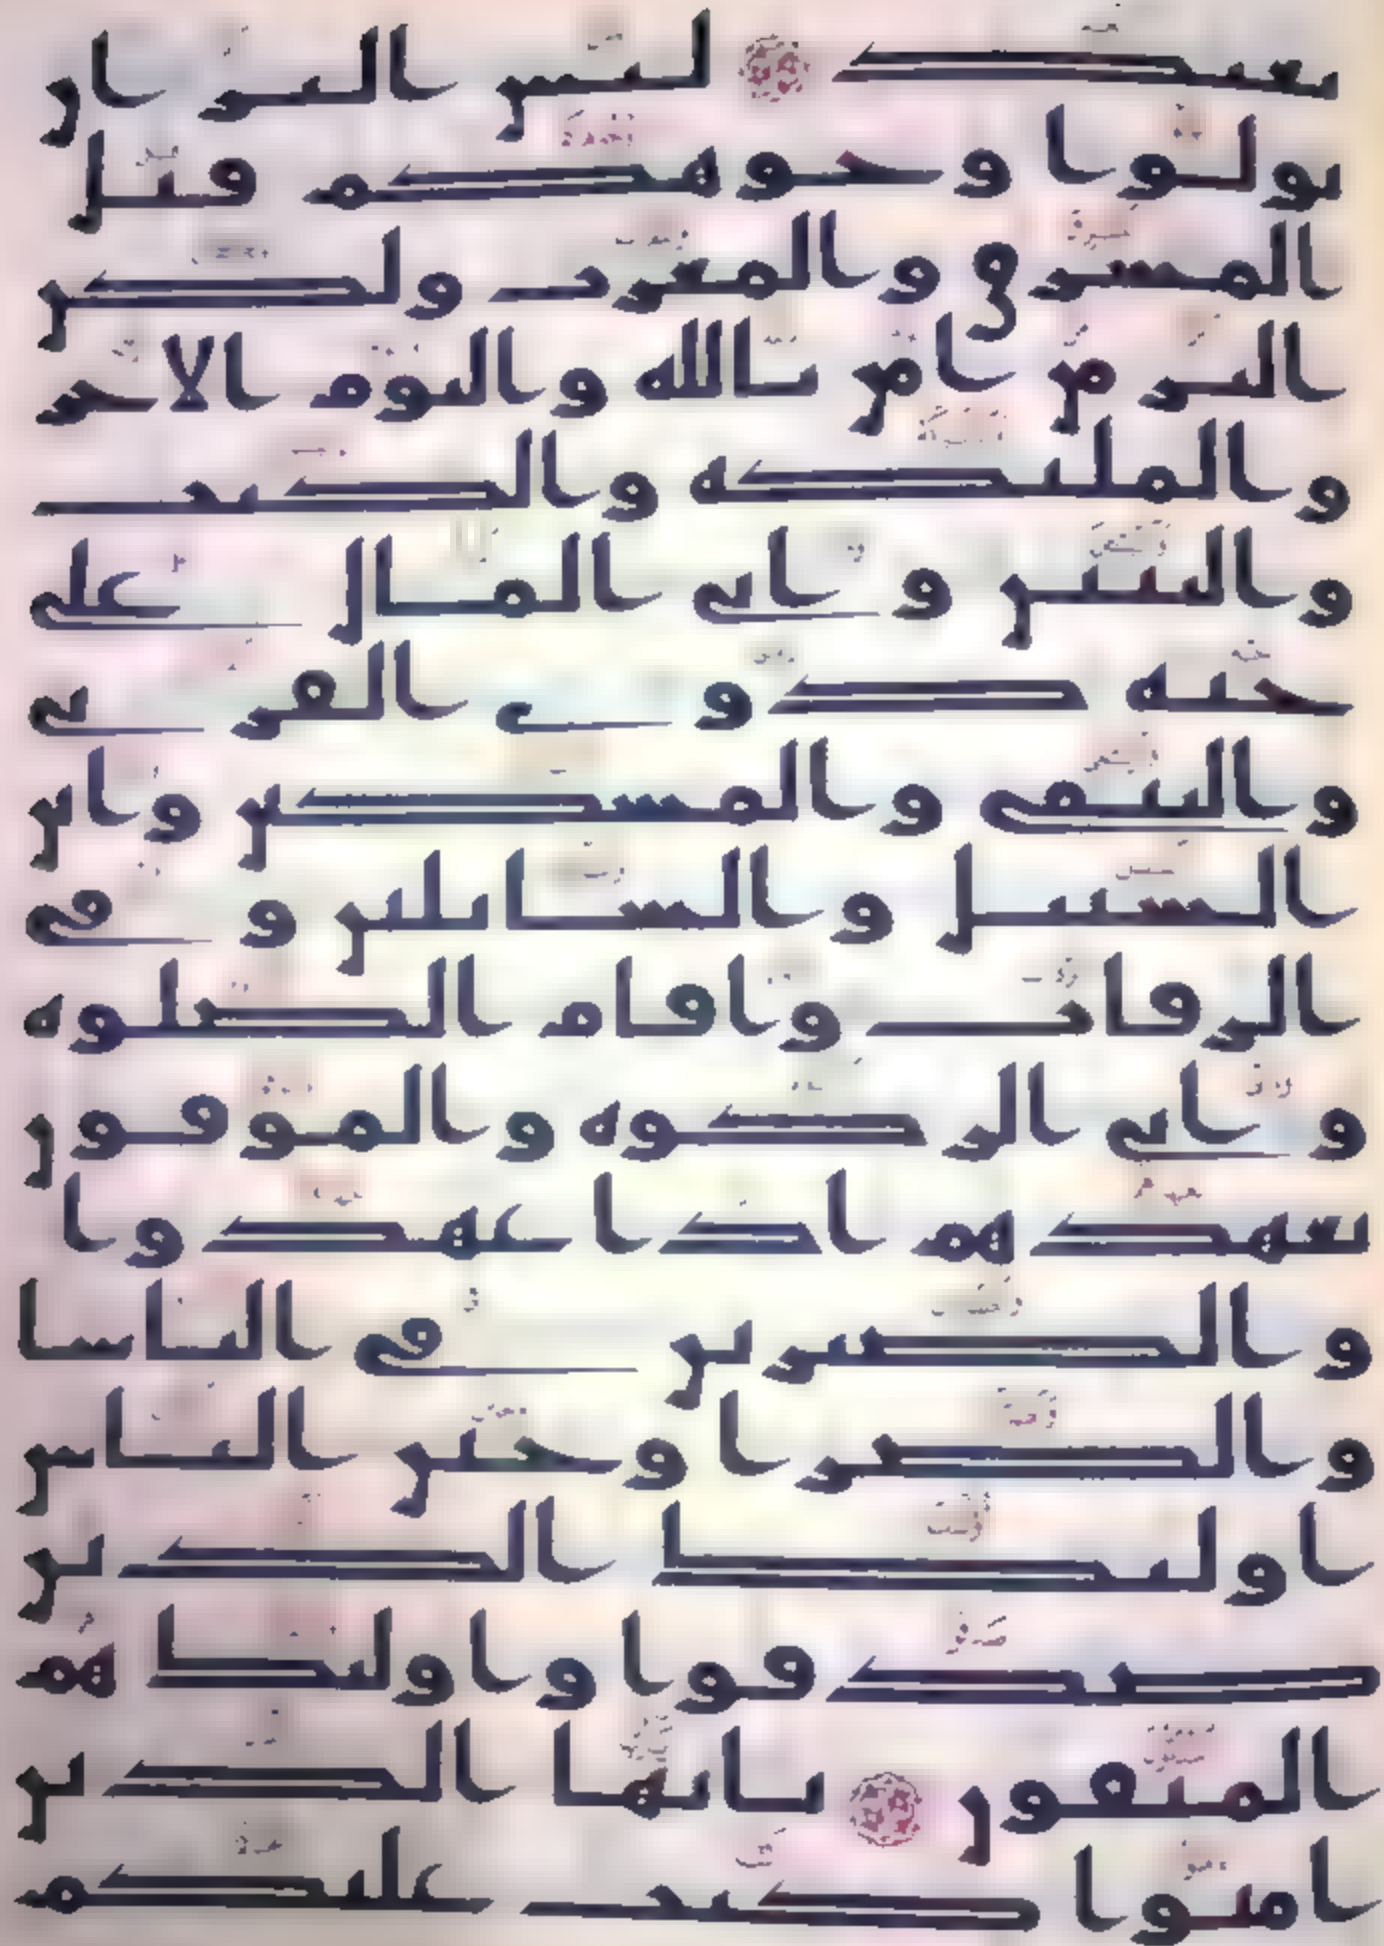 بعيد ۝ ليس البر ان
تولوا وجوهكم قبل
المشرق والمغرب ولكن
البر من امن بالله واليوم الاخر
والمليكه والكتب
والنبين واتى المال على
حبه ذوى القربى
واليتمى والمسكين وابن
السبيل والسايلين وفى
الرقاب واقام الصلوه
واتى الزكوه والموفون
بعهدهم اذا عهدوا
والصبرين فى الباسا
والضرا وحين الباس
اوليك الذين
صدقوا واوليك هم
المتقون ۝ يايها الذين
امنوا كتب عليكم